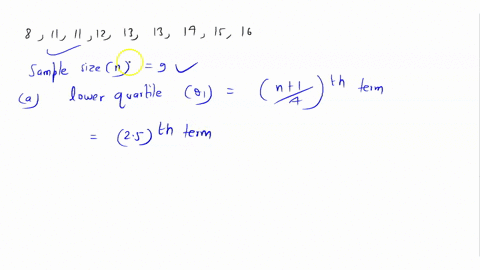 8, 11, 11, 12, 13, 13, 14, 15, 16
Sample size (n) = 9 ✓
(a) lower quartile (Q1) = (n+1/4)th term
= (2.5)th term